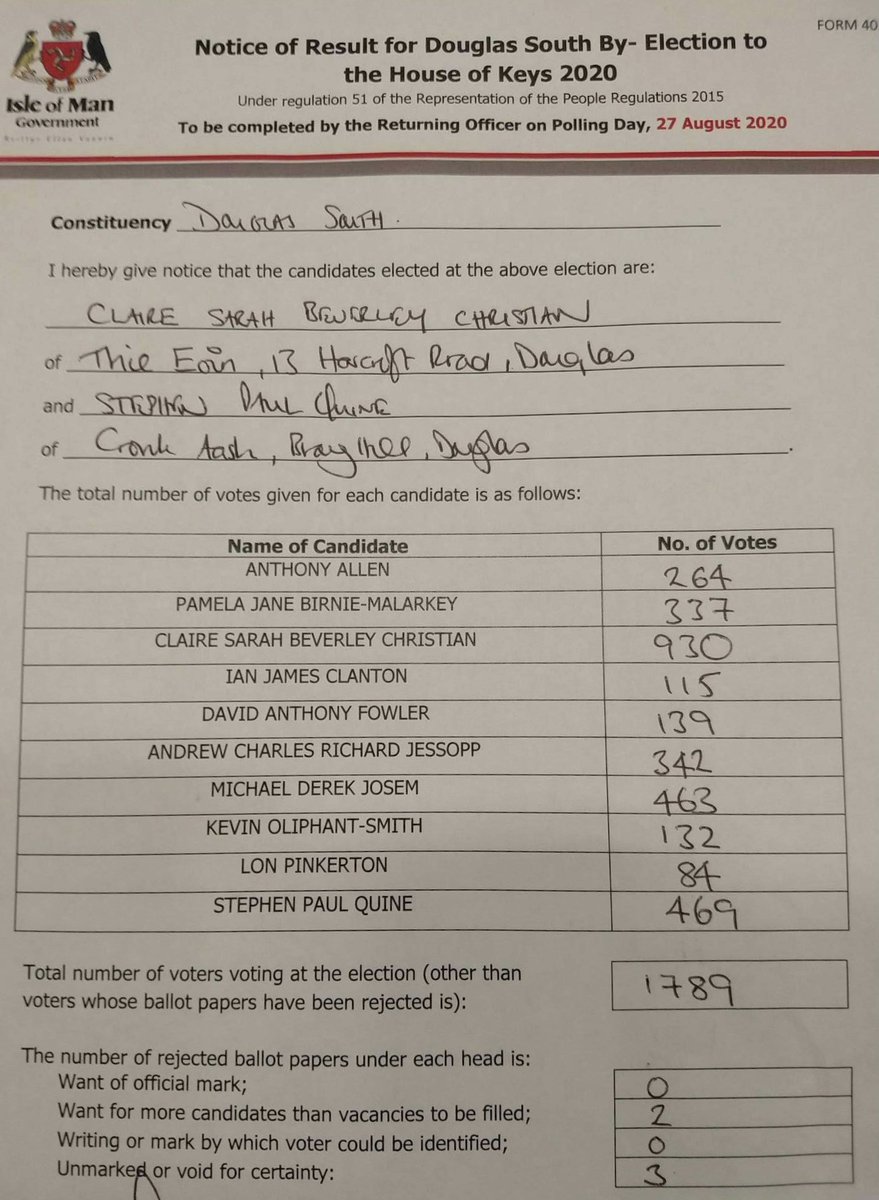 FORM 40
Isle of Man
Government
Reiltys Ellan Vannin
Notice of Result for Douglas South By- Election to
the House of Keys 2020
Under regulation 51 of the Representation of the People Regulations 2015
To be completed by the Returning Officer on Polling Day, 27 August 2020
Constituency Douglas South.
I hereby give notice that the candidates elected at the above election are:
CLAIRE SARAH BEVERLEY CHRISTIAN
of Thie Eoin, 13 Road, Douglas
and STEPHEN PAUL QUINE
of Cronk Aash, Douglas.
The total number of votes given for each candidate is as follows:
Name of Candidate No. of Votes
ANTHONY ALLEN 264
PAMELA JANE BIRNIE-MALARKEY 337
CLAIRE SARAH BEVERLEY CHRISTIAN 930
IAN JAMES CLANTON 115
DAVID ANTHONY FOWLER 139
ANDREW CHARLES RICHARD JESSOPP 342
MICHAEL DEREK JOSEM 463
KEVIN OLIPHANT-SMITH 132
LON PINKERTON 84
STEPHEN PAUL QUINE 469
Total number of voters voting at the election (other than
voters whose ballot papers have been rejected is): 1789
The number of rejected ballot papers under each head is:
Want of official mark; 0
Want for more candidates than vacancies to be filled; 2
Writing or mark by which voter could be identified; 0
Unmarked or void for certainty: 3